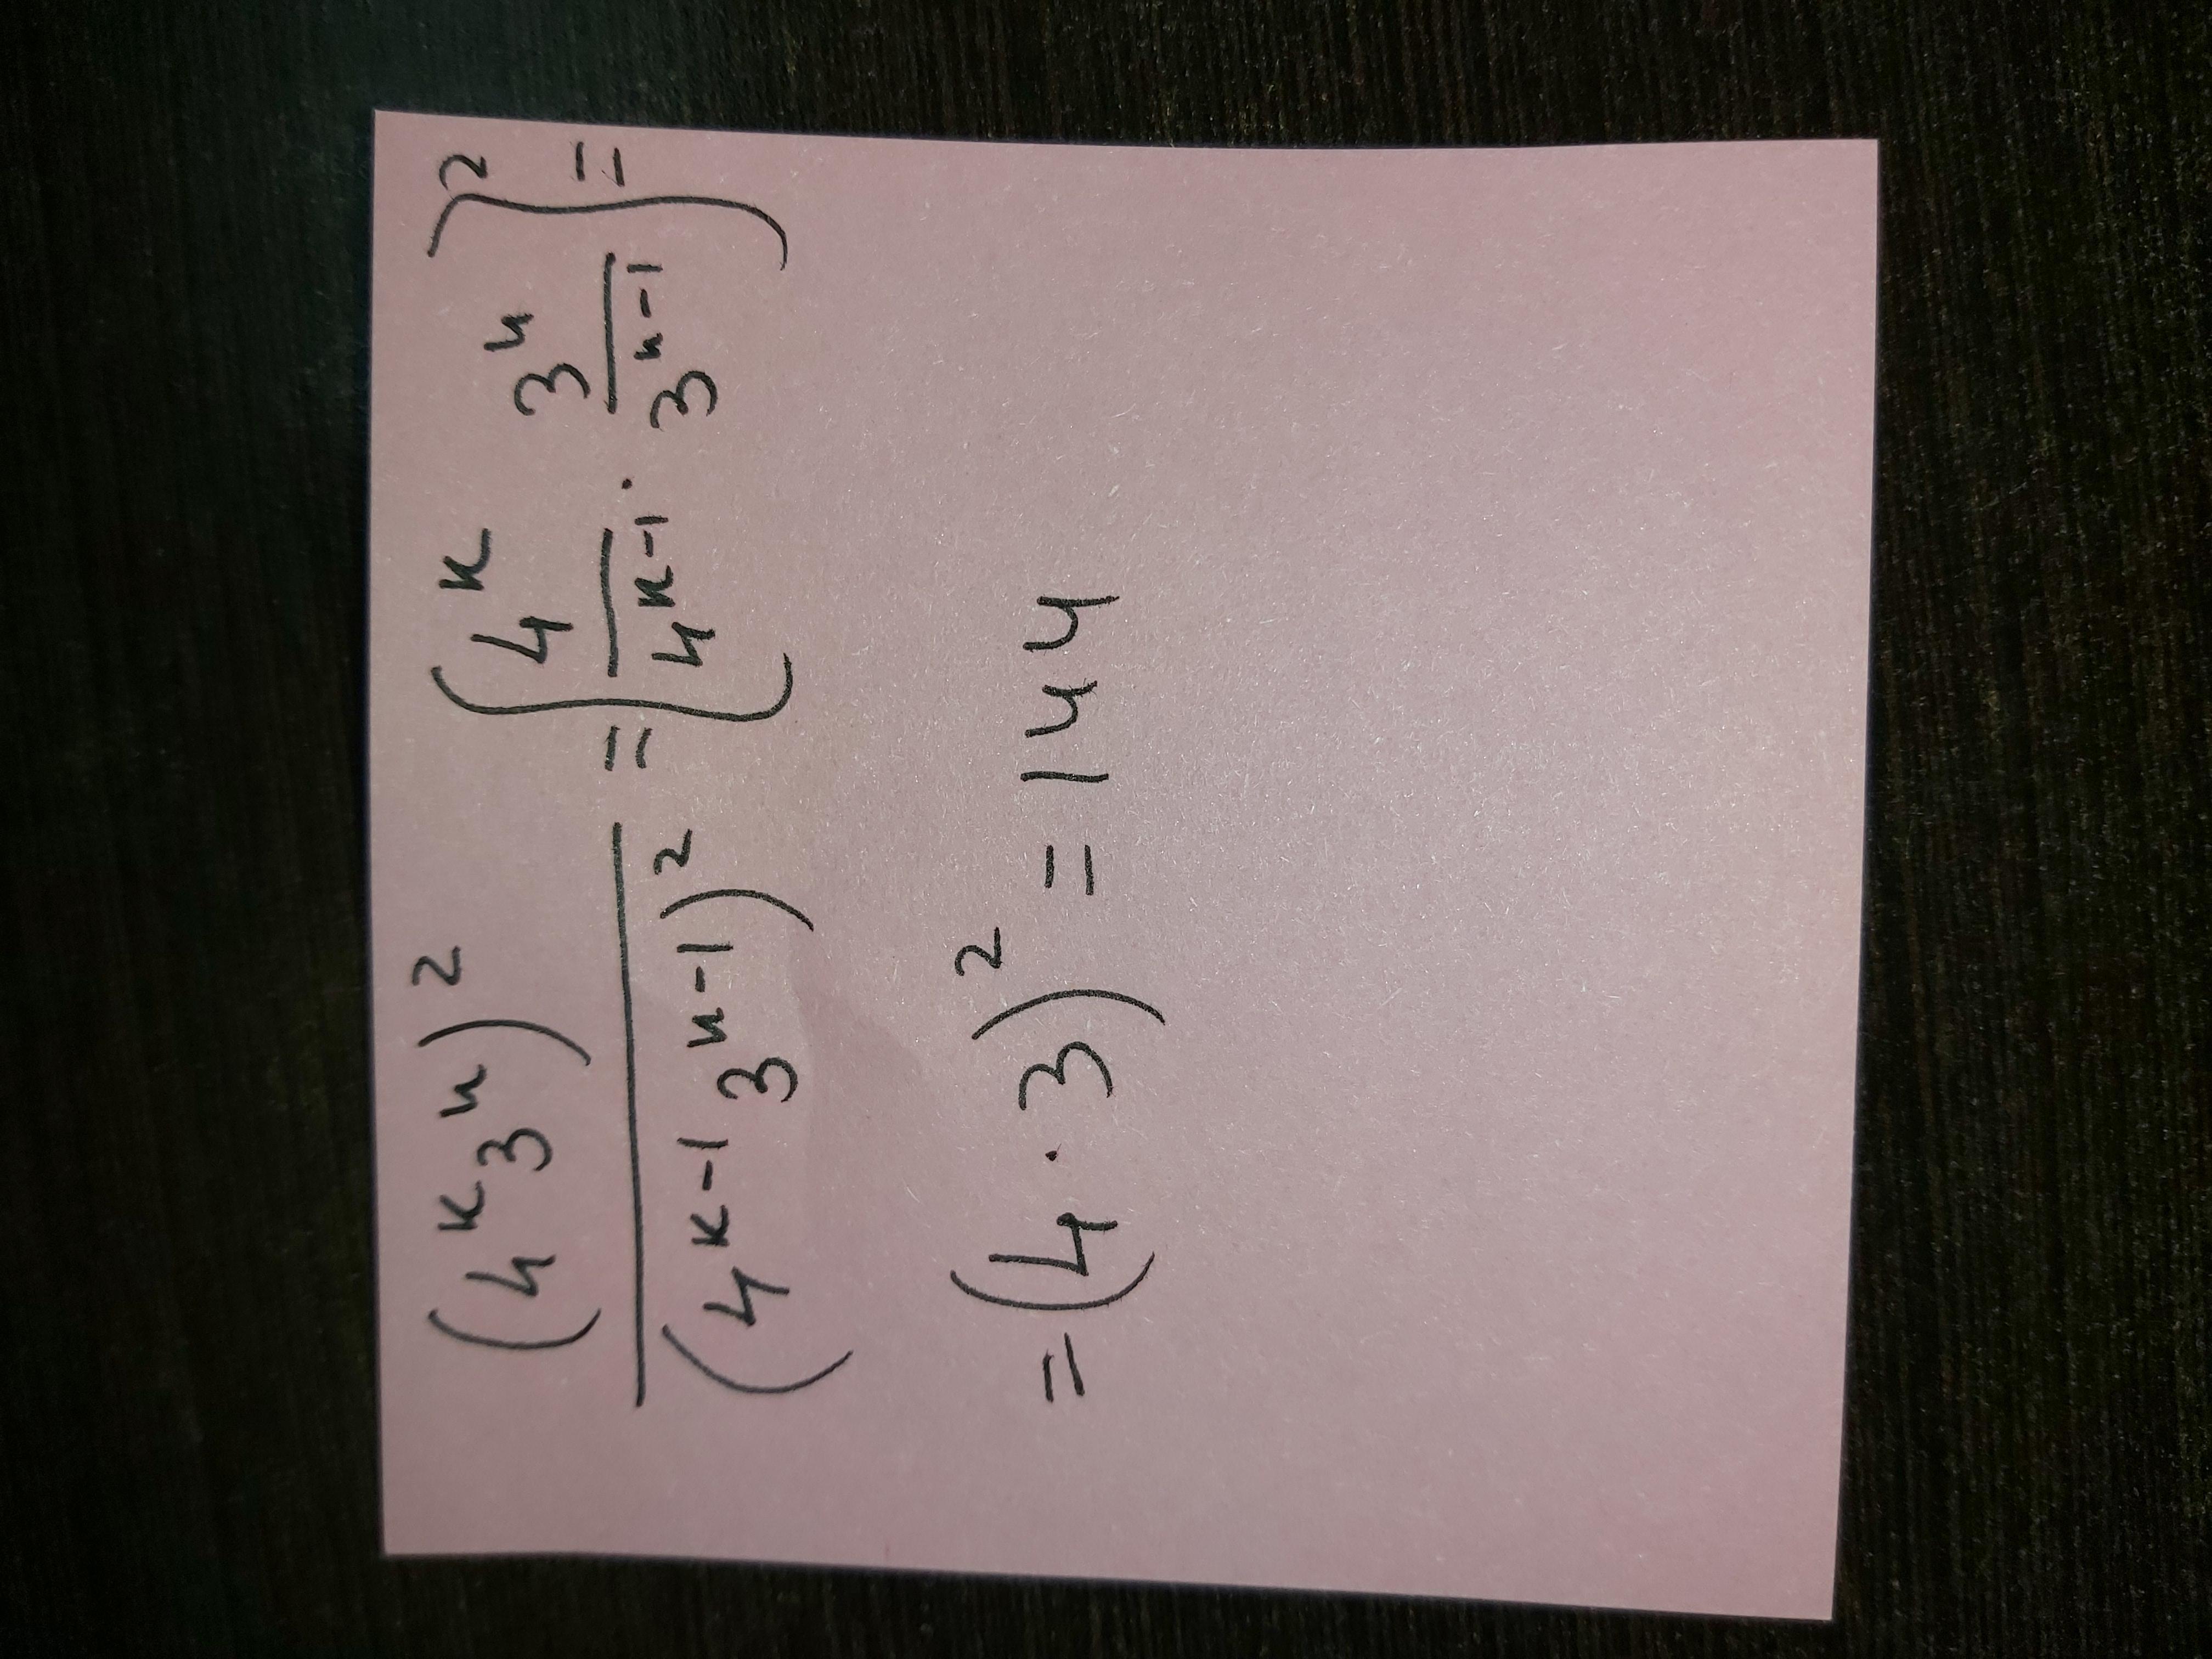 (4^k 3^n)^2 / (4^{k-1} 3^{n-1})^2 = (4^k / 4^{k-1} · 3^n / 3^{n-1})^2 =
= (4 · 3)^2 = 144